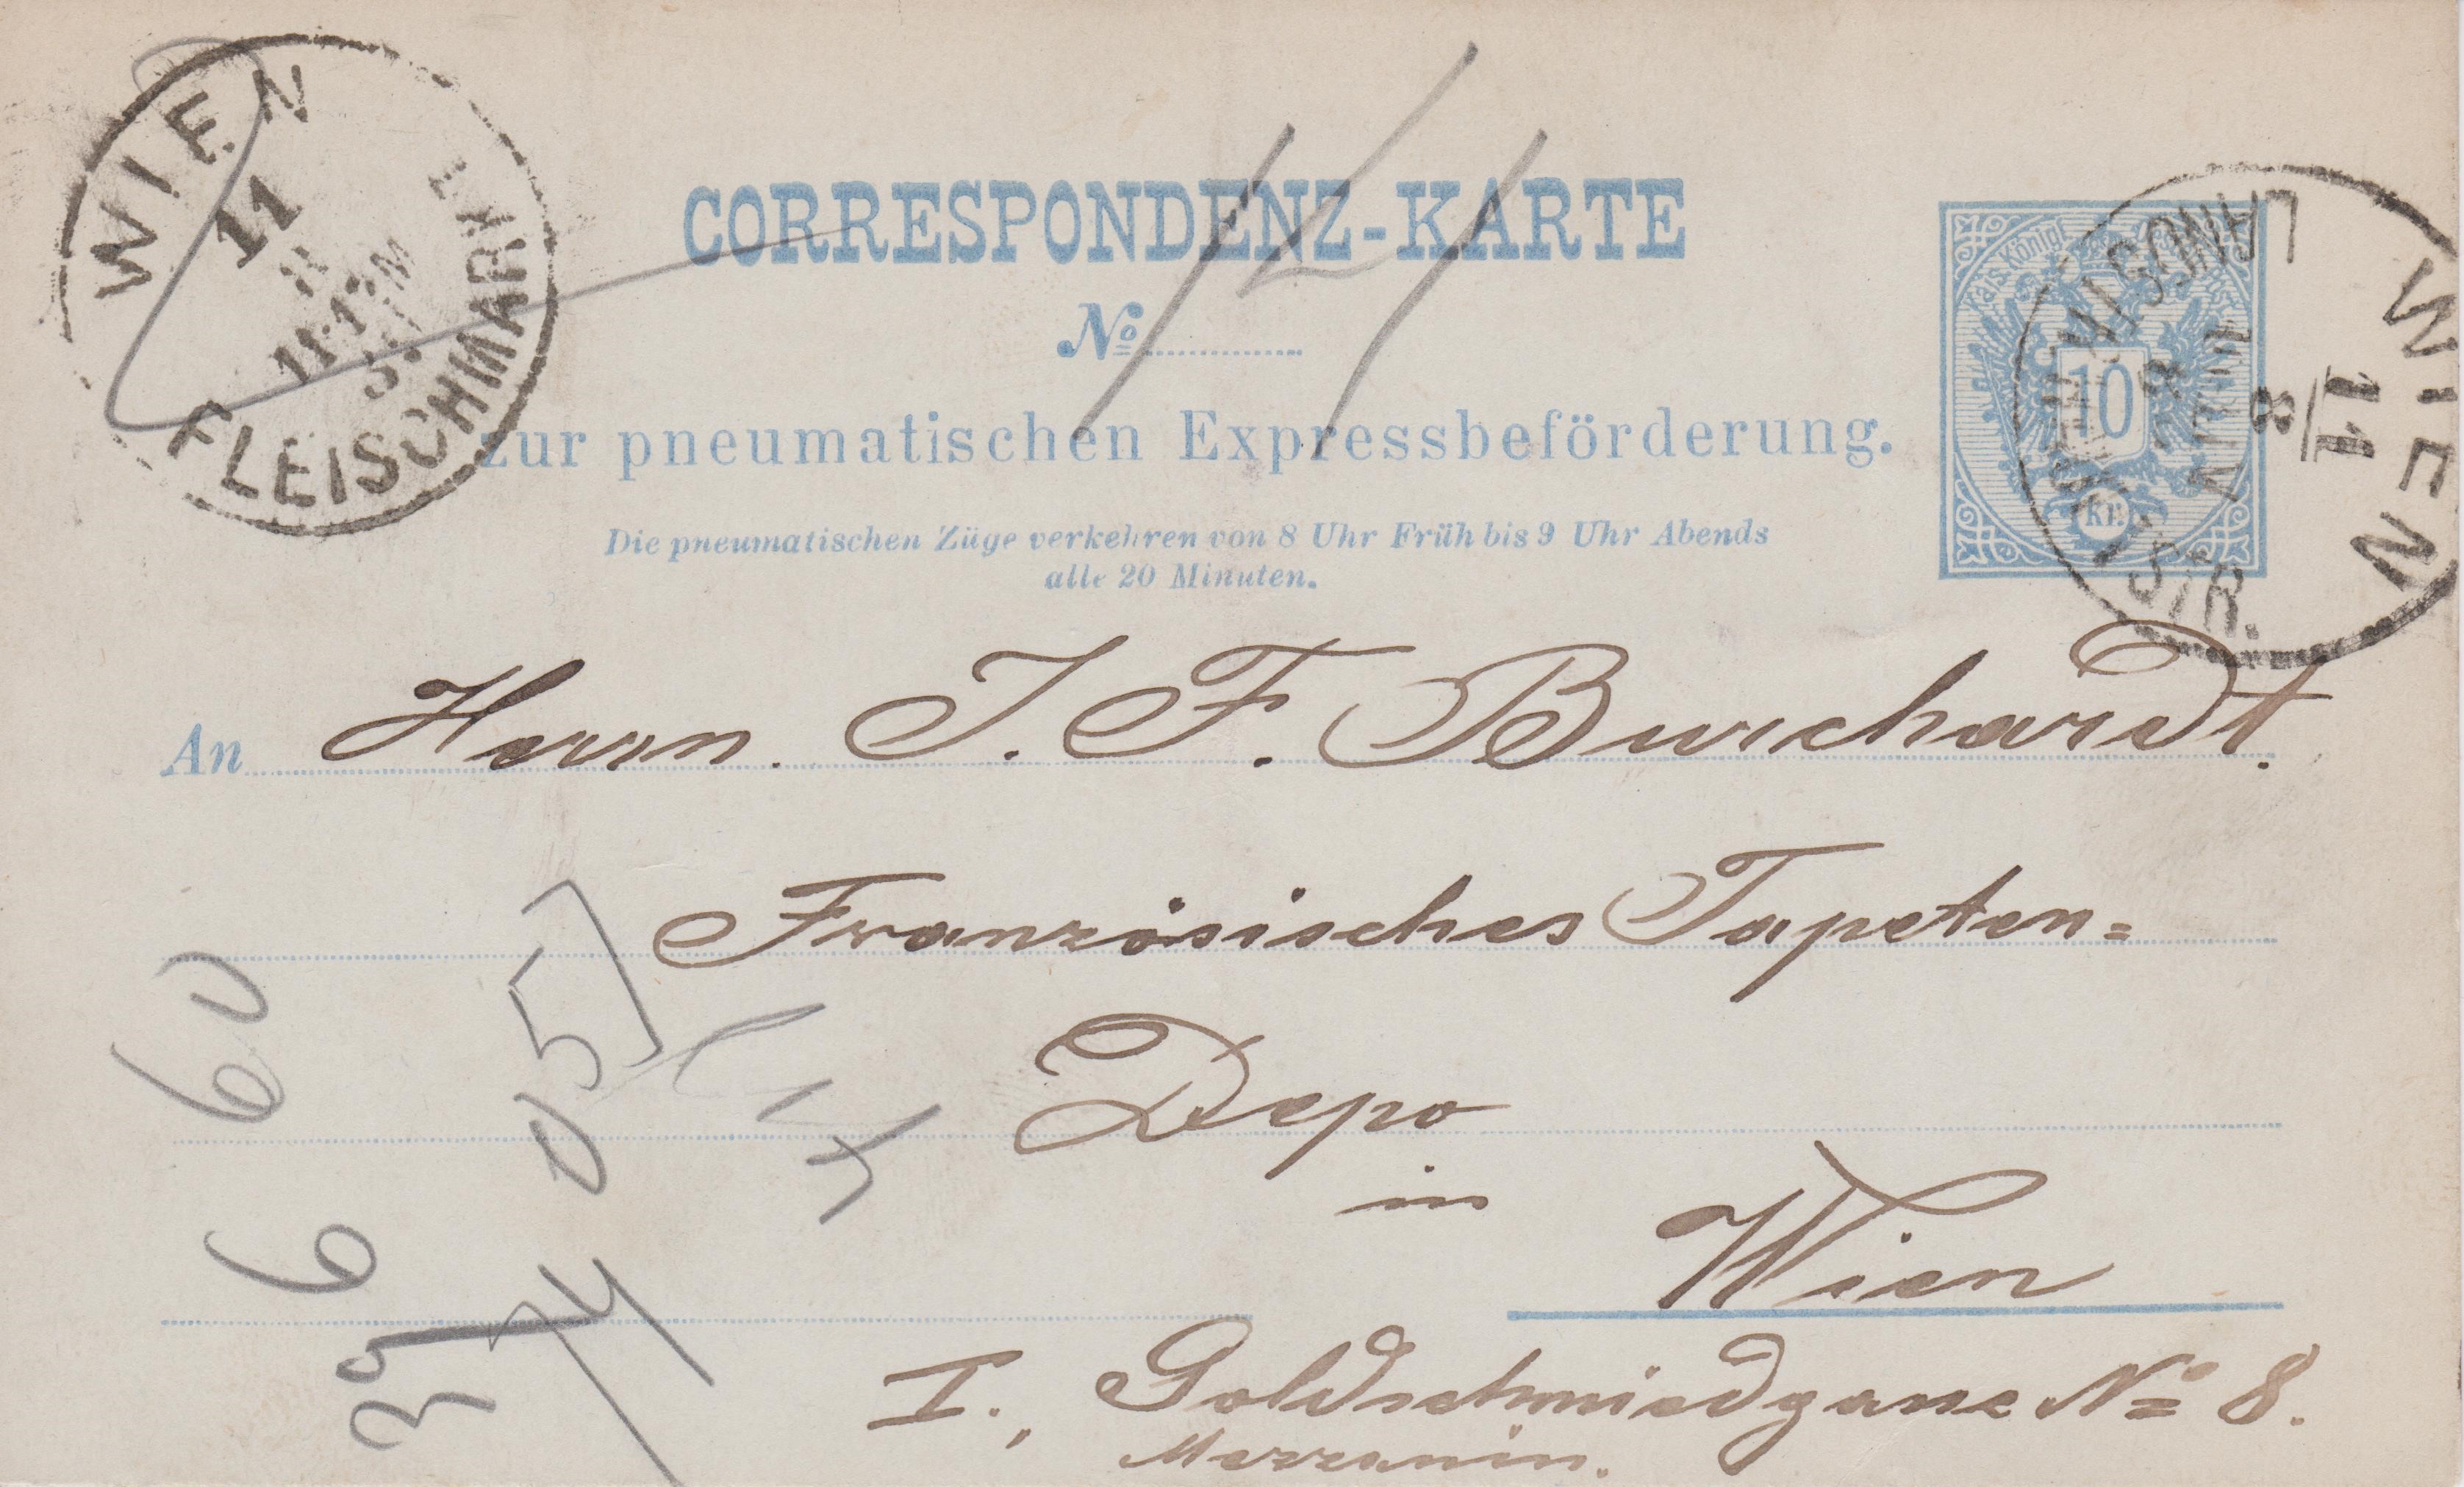 WIEN
11
8
FLEISCHMARKT
CORRESPONDENZ-KARTE
No
zur pneumatischen Expressbeförderung.
Die pneumatischen Züge verkehren von 8 Uhr Früh bis 9 Uhr Abends
alle 20 Minuten.
10
kr.
WIEN
11
8
STR.
An Herrn. J. F. Burchardt.
Französisches Tapeten=
Depo
in
Wien
I., Goldschmiedgasse No 8.
Mezzanin.
60
6